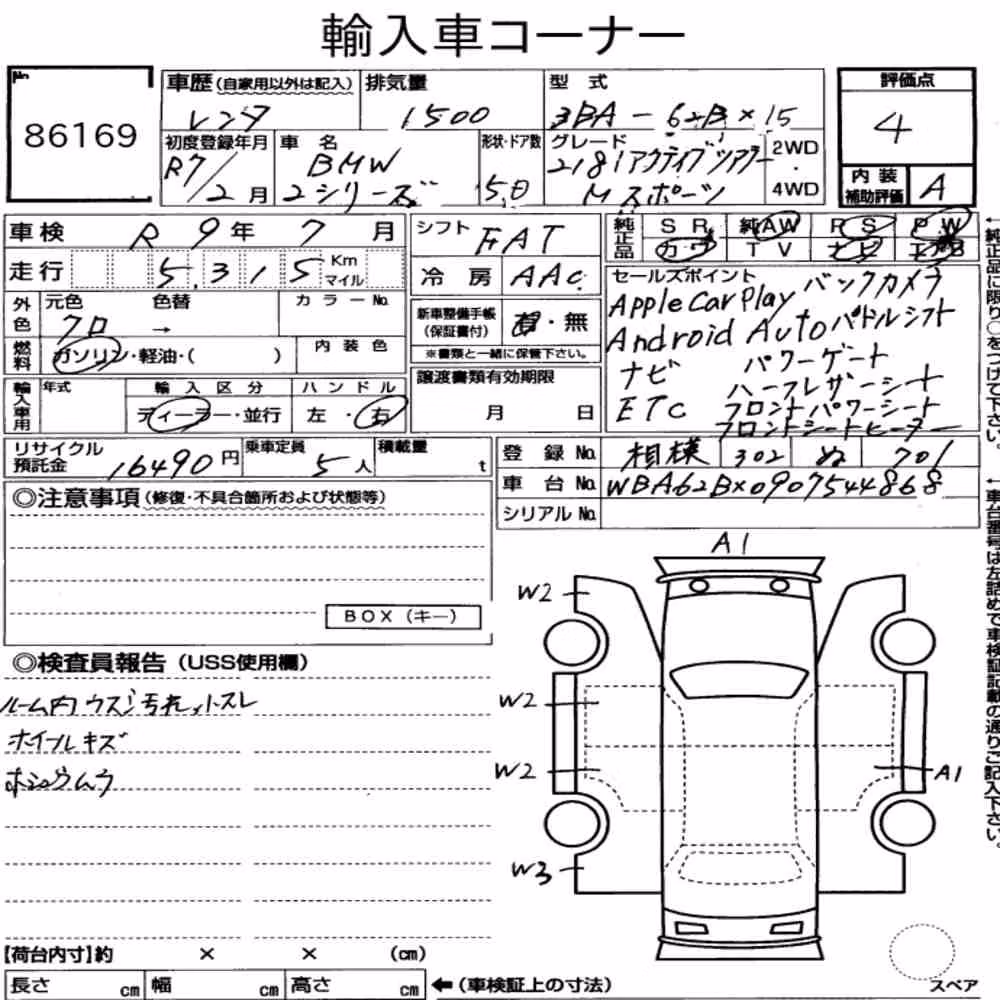 輸入車コーナー
No.
86169
車歴(自家用以外は記入)
レンタ
排気量
1500
型式
3BA-62B×15
評価点
4
初度登録年月
R7/2月
車名
BMW
2シリーズ
形状・ドア数
5.D
グレード
218iアクティブツアラー
Mスポーツ
2WD
・
4WD
内装
補助評価
A
車検
R 9年 7月
シフト
FAT
純正品
SR 純AW RS PW
カワ TV ナビ エアB
走行
5,315 Km
マイル
冷房
AAC
セールスポイント
Apple CarPlay バックカメラ
Android Auto パドルシフト
ナビ パワーゲート
ETC ハーフレザーシート
フロントパワーシート
フロントシートヒーター
外色
元色
クロ
→
色替
カラーNo.
新車整備手帳
(保証書付)
有・無
※書類と一緒に保管下さい。
燃料
ガソリン・軽油・( )
内装色
輸入車用
年式
輸入区分
ディーラー・並行
ハンドル
左・右
譲渡書類有効期限
月 日
リサイクル
預託金
16490円
乗車定員
5人
積載量
t
登録No.
相模 302 ぬ 701
車台No.
WBA62BX0907544868
シリアルNo.
◎注意事項(修復・不具合箇所および状態等)
BOX(キー)
◎検査員報告(USS使用欄)
ルーム内ウスシ汚れ×トスレ
ホイールキズ
ホシュウムラ
A1
W2
W2
W2
A1
W3
スペア
【荷台内寸】約 × × (cm)
長さ cm 幅 cm 高さ cm
←(車検証上の寸法)
←純正品に限り○をつけて下さい。
←車台番号は左詰めで車検証記載の通りご記入下さい。